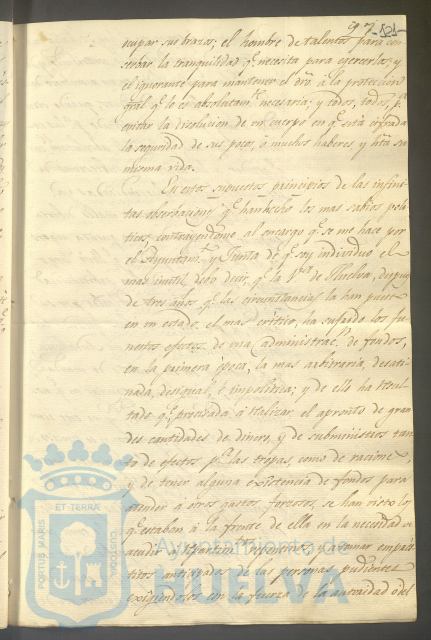 97 -521-
ocupar sus brazos; el hombre de talentos para con
servar la tranquilidad q.e necesita para egercerlos; y
el ignorante para mantener el dro. à la protección
gral q.e le es absolutam.te necesaria; y todos, todos, p.a
evitar la disolucion de un cuerpo en q.e està cifrada
la seguridad de sus pocos, ò muchos haberes y hta su
misma vida.
En estos supuestos principios de las infini
tas observaciones q.e han hecho los mas sabios poli
ticos, contrayendome al encargo q.e se me hace por
el Ayuntam.to y Junta de q.e soy individuo el
mas inutil, debo decir, q.e la V.a de Huelva, despues
de tres años q.e las circunstancias la han puesto
en un estado el mas critico, ha sufrido los fu
nestos efectos de una administrac.n de fondos,
en la primera época, la mas arbitraria, desati
nada, desigual, è impolitica; y de ello ha resul
tado q.e precisada à realizar el apronto de gran
des cantidades de dinero, y de subministros tan
to de efectos p.a las tropas, como de raciones,
y de tener alguna existencia de fondos para
atender à otros gastos forzosos, se han visto los
q.e estaban à la frente de ella en la necesidad de
acudir à repartim.tos repentinos, y à tomar emprés
titos anticipados de las personas pudientes
exigiendolos con la fuerza de la autoridad o del
Ayuntamiento de
HUELVA
PORTUS MARIS ET TERRÆ CUSTODIA